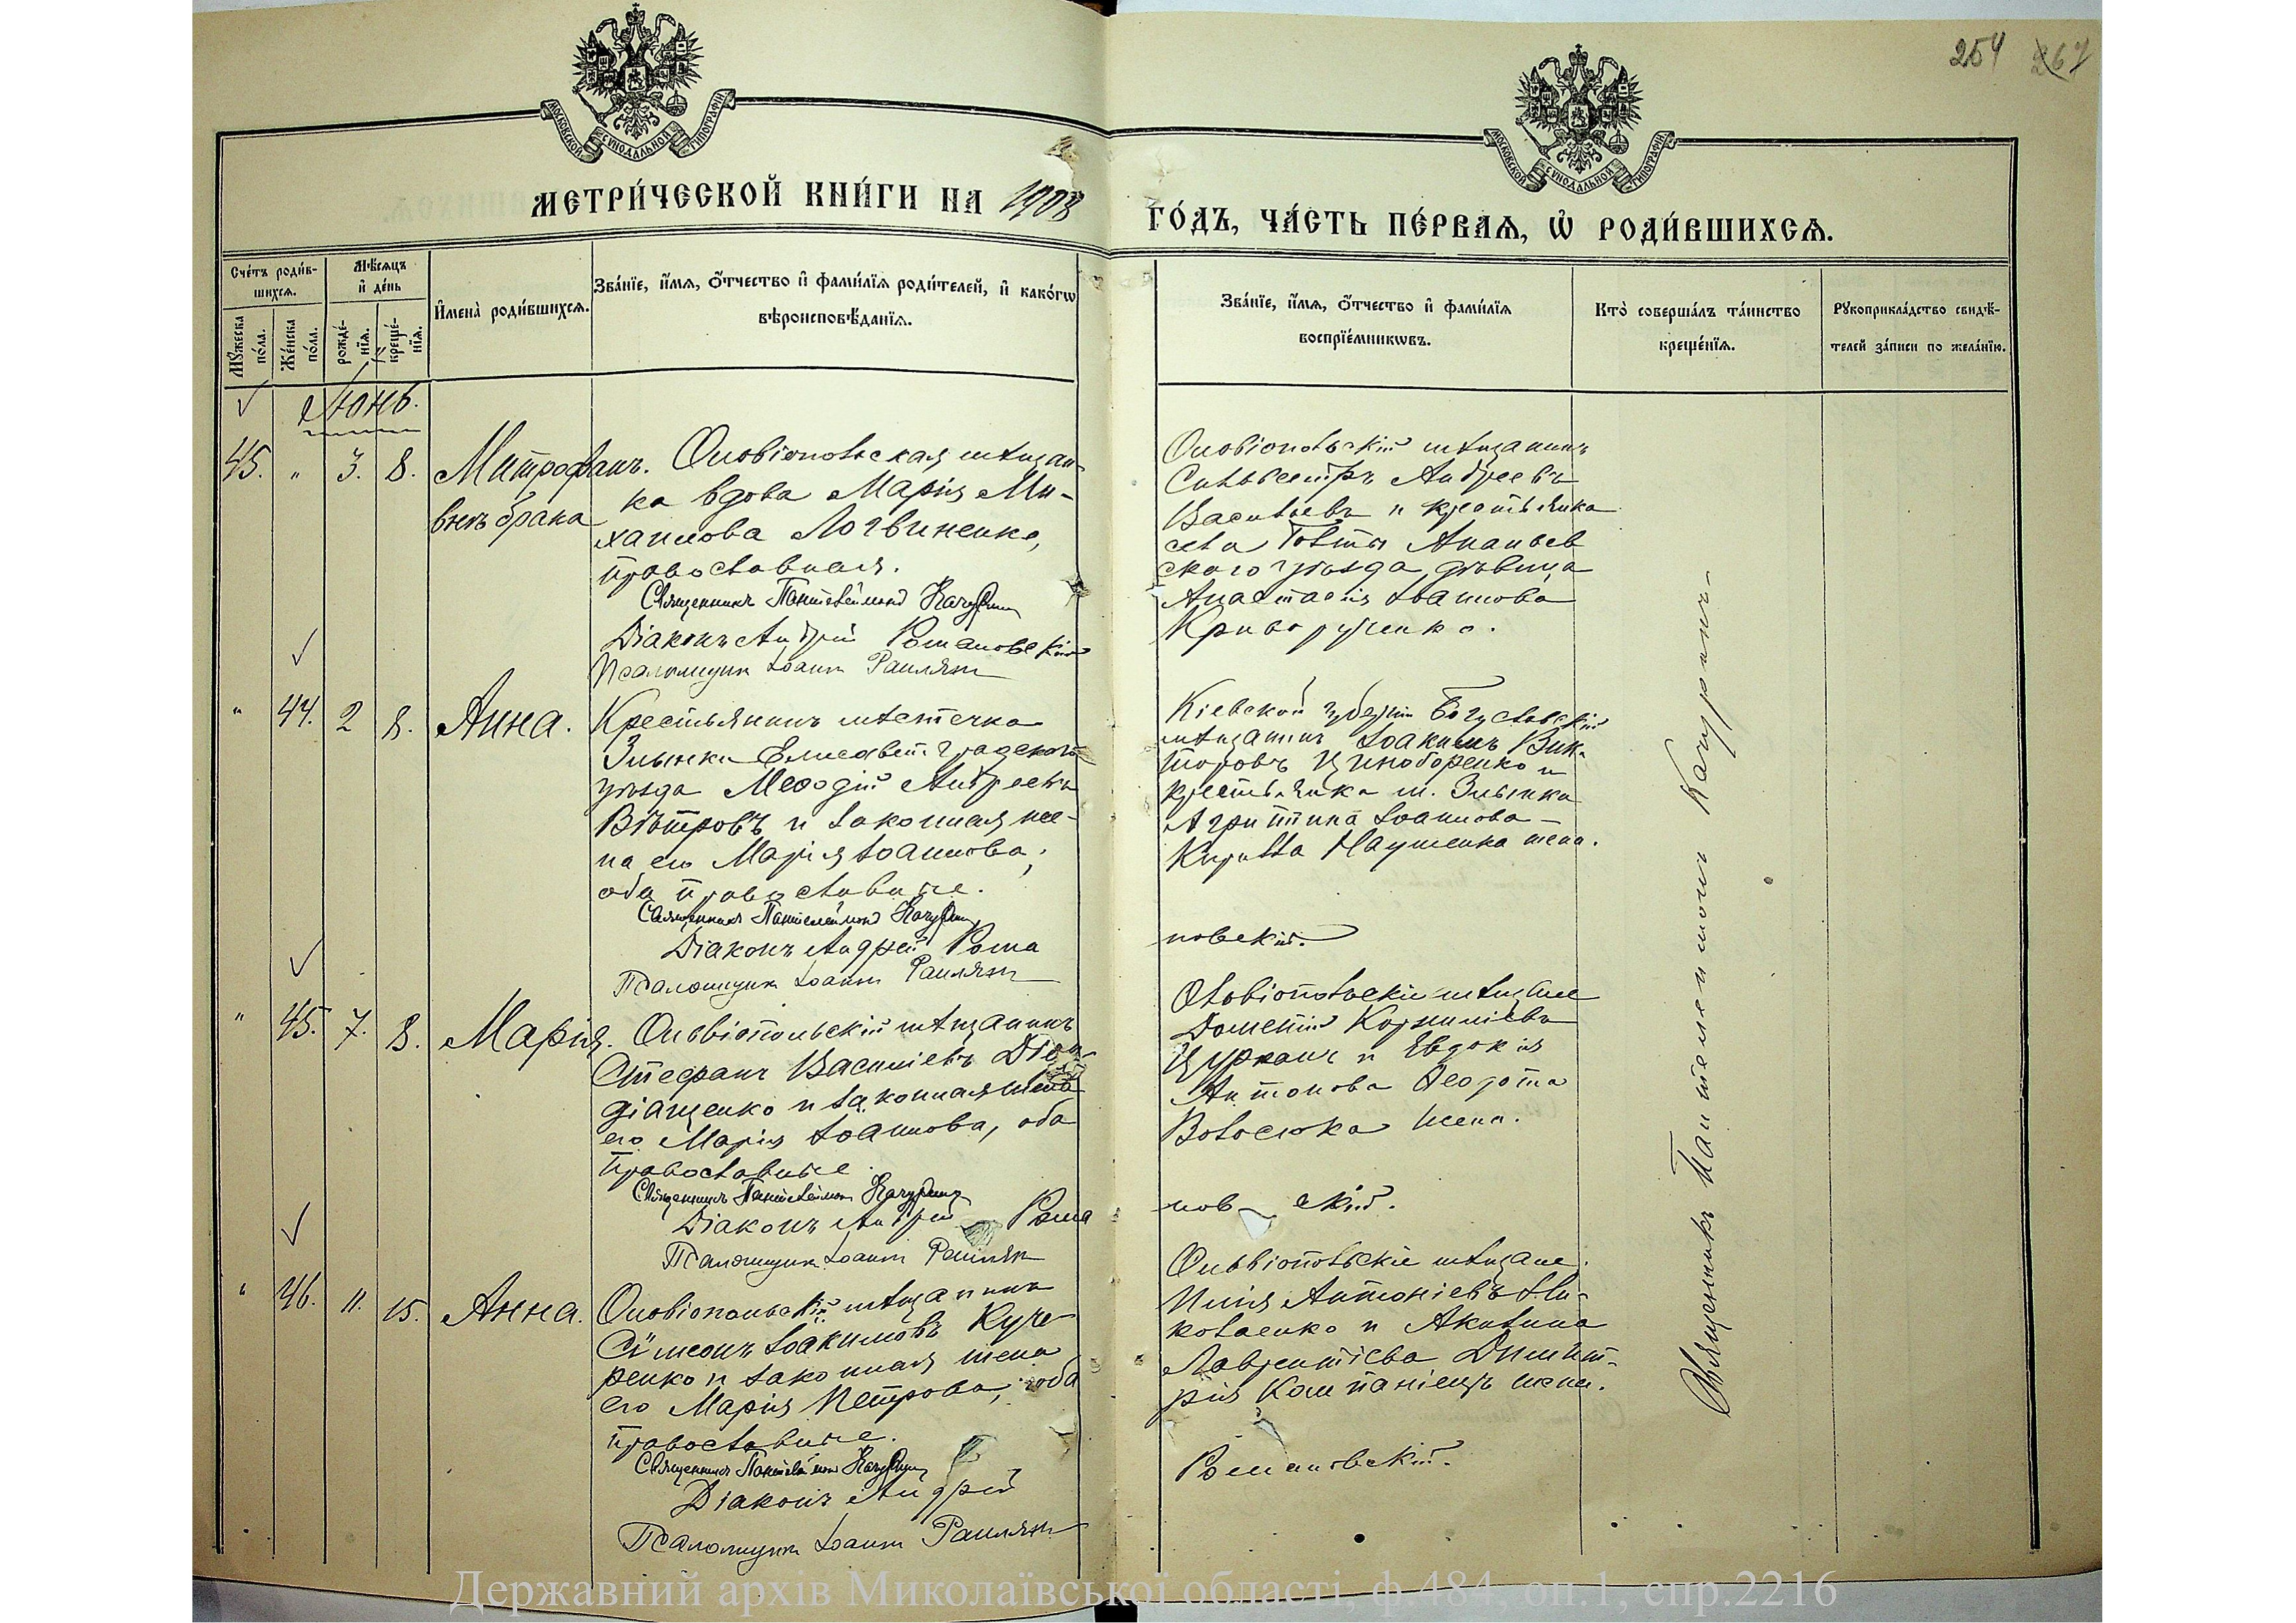 254 267
МОСКОВСКОЙ СѴНОДАЛЬНОЙ ТИПОГРАФІИ
МОСКОВСКОЙ СѴНОДАЛЬНОЙ ТИПОГРАФІИ
МЕТРИ́ЧЕСКОЙ КНИ́ГИ НА 1908
ГО́ДЪ, ЧА́СТЬ ПЕ́РВАѦ, Ѡ҆ РОДИ́ВШИХСѦ.
Сче́тъ роди́в-
шихсѧ.
Мꙋ́жеска по́ла.
Же́нска по́ла.
Мѣ́сѧцъ
и҆ де́нь
рожде́-
нїѧ.
креще́-
нїѧ.
И҆мена̀ роди́вшихсѧ.
Зва́нїе, и҆́мѧ, ѻ҆́тчество и҆ фами́лїѧ роди́телей, и҆ како́гѡ
вѣроисповѣ́данїѧ.
Зва́нїе, и҆́мѧ, ѻ҆́тчество и҆ фами́лїѧ
воспрїе́мникѡвъ.
Кто̀ соверша́лъ та́инство
креще́нїѧ.
Рꙋкоприкла́дство свидѣ́-
телей за́писи по жела́нїю.
Іюнь.
45. " 3. 8. Митрофанъ.
внѣ брака
Ольвіопольская мѣщан-
ка вдова Марія Ми-
хаилова Логвиненко,
православная.
Священникъ Пантелеймонъ Качурин
Діаконъ Андрей Романовскій
Псаломщик Іоанн Раилян
Ольвіопольскій мѣщанинъ
Сильвестръ Андреевъ
Васильевъ и крестьянка
села Ананьев
скаго уѣзда, дѣвица
Анастасія Іоаннова
Криворученко.
" 44. 2 8. Анна.
Крестьянинъ мѣстечка
Злынки Елисаветградскаго
уѣзда Меѳодій Андреевъ
Вѣтровъ и законная же-
на его Марія Іоаннова,
оба православные.
Священникъ Пантелеймонъ Качурин
Діаконъ Андрей Рома
новскій.
Псаломщик Іоанн Раилян
Кіевской губерніи Богуславскій
мѣщанинъ Іоакимъ Вик-
торовъ и
крестьянка м. Злынка
Агриппина Іоаннова
Кирилла жена.
" 45. 7. 8. Марія.
Ольвіопольскій мѣщанинъ
Стефанъ Василіевъ
и законная жена
его Марія Іоаннова, оба
православные
Священникъ Пантелеймон Качурин
Діаконъ Андрей Рома
новскій.
Псаломщик Іоанн Раилян
Ольвіопольскіе мѣщане
Дометій Корниліевъ
Цурканъ и Евдокія
Антонова Ѳеодота
Волосюка жена.
" 46. 11. 15. Анна.
Ольвіопольскій мѣщанинъ
Сѵмеонъ Іоакимовъ Куче-
ренко и законная жена
его Марія Петрова, оба
православные.
Священникъ Пантелеймон Качурин
Діаконъ Андрей
Романовскій.
Псаломщик Іоанн Раилян
Ольвіопольскіе мѣщане
Илія Антоніевъ Ни-
колаенко и Акилина
Лаврентіева Димит-
рія Компаніецъ жена.
Священникъ Пантелеимонъ Качуринъ
Державний архів Миколаївської області, ф.484, оп.1, спр.2216